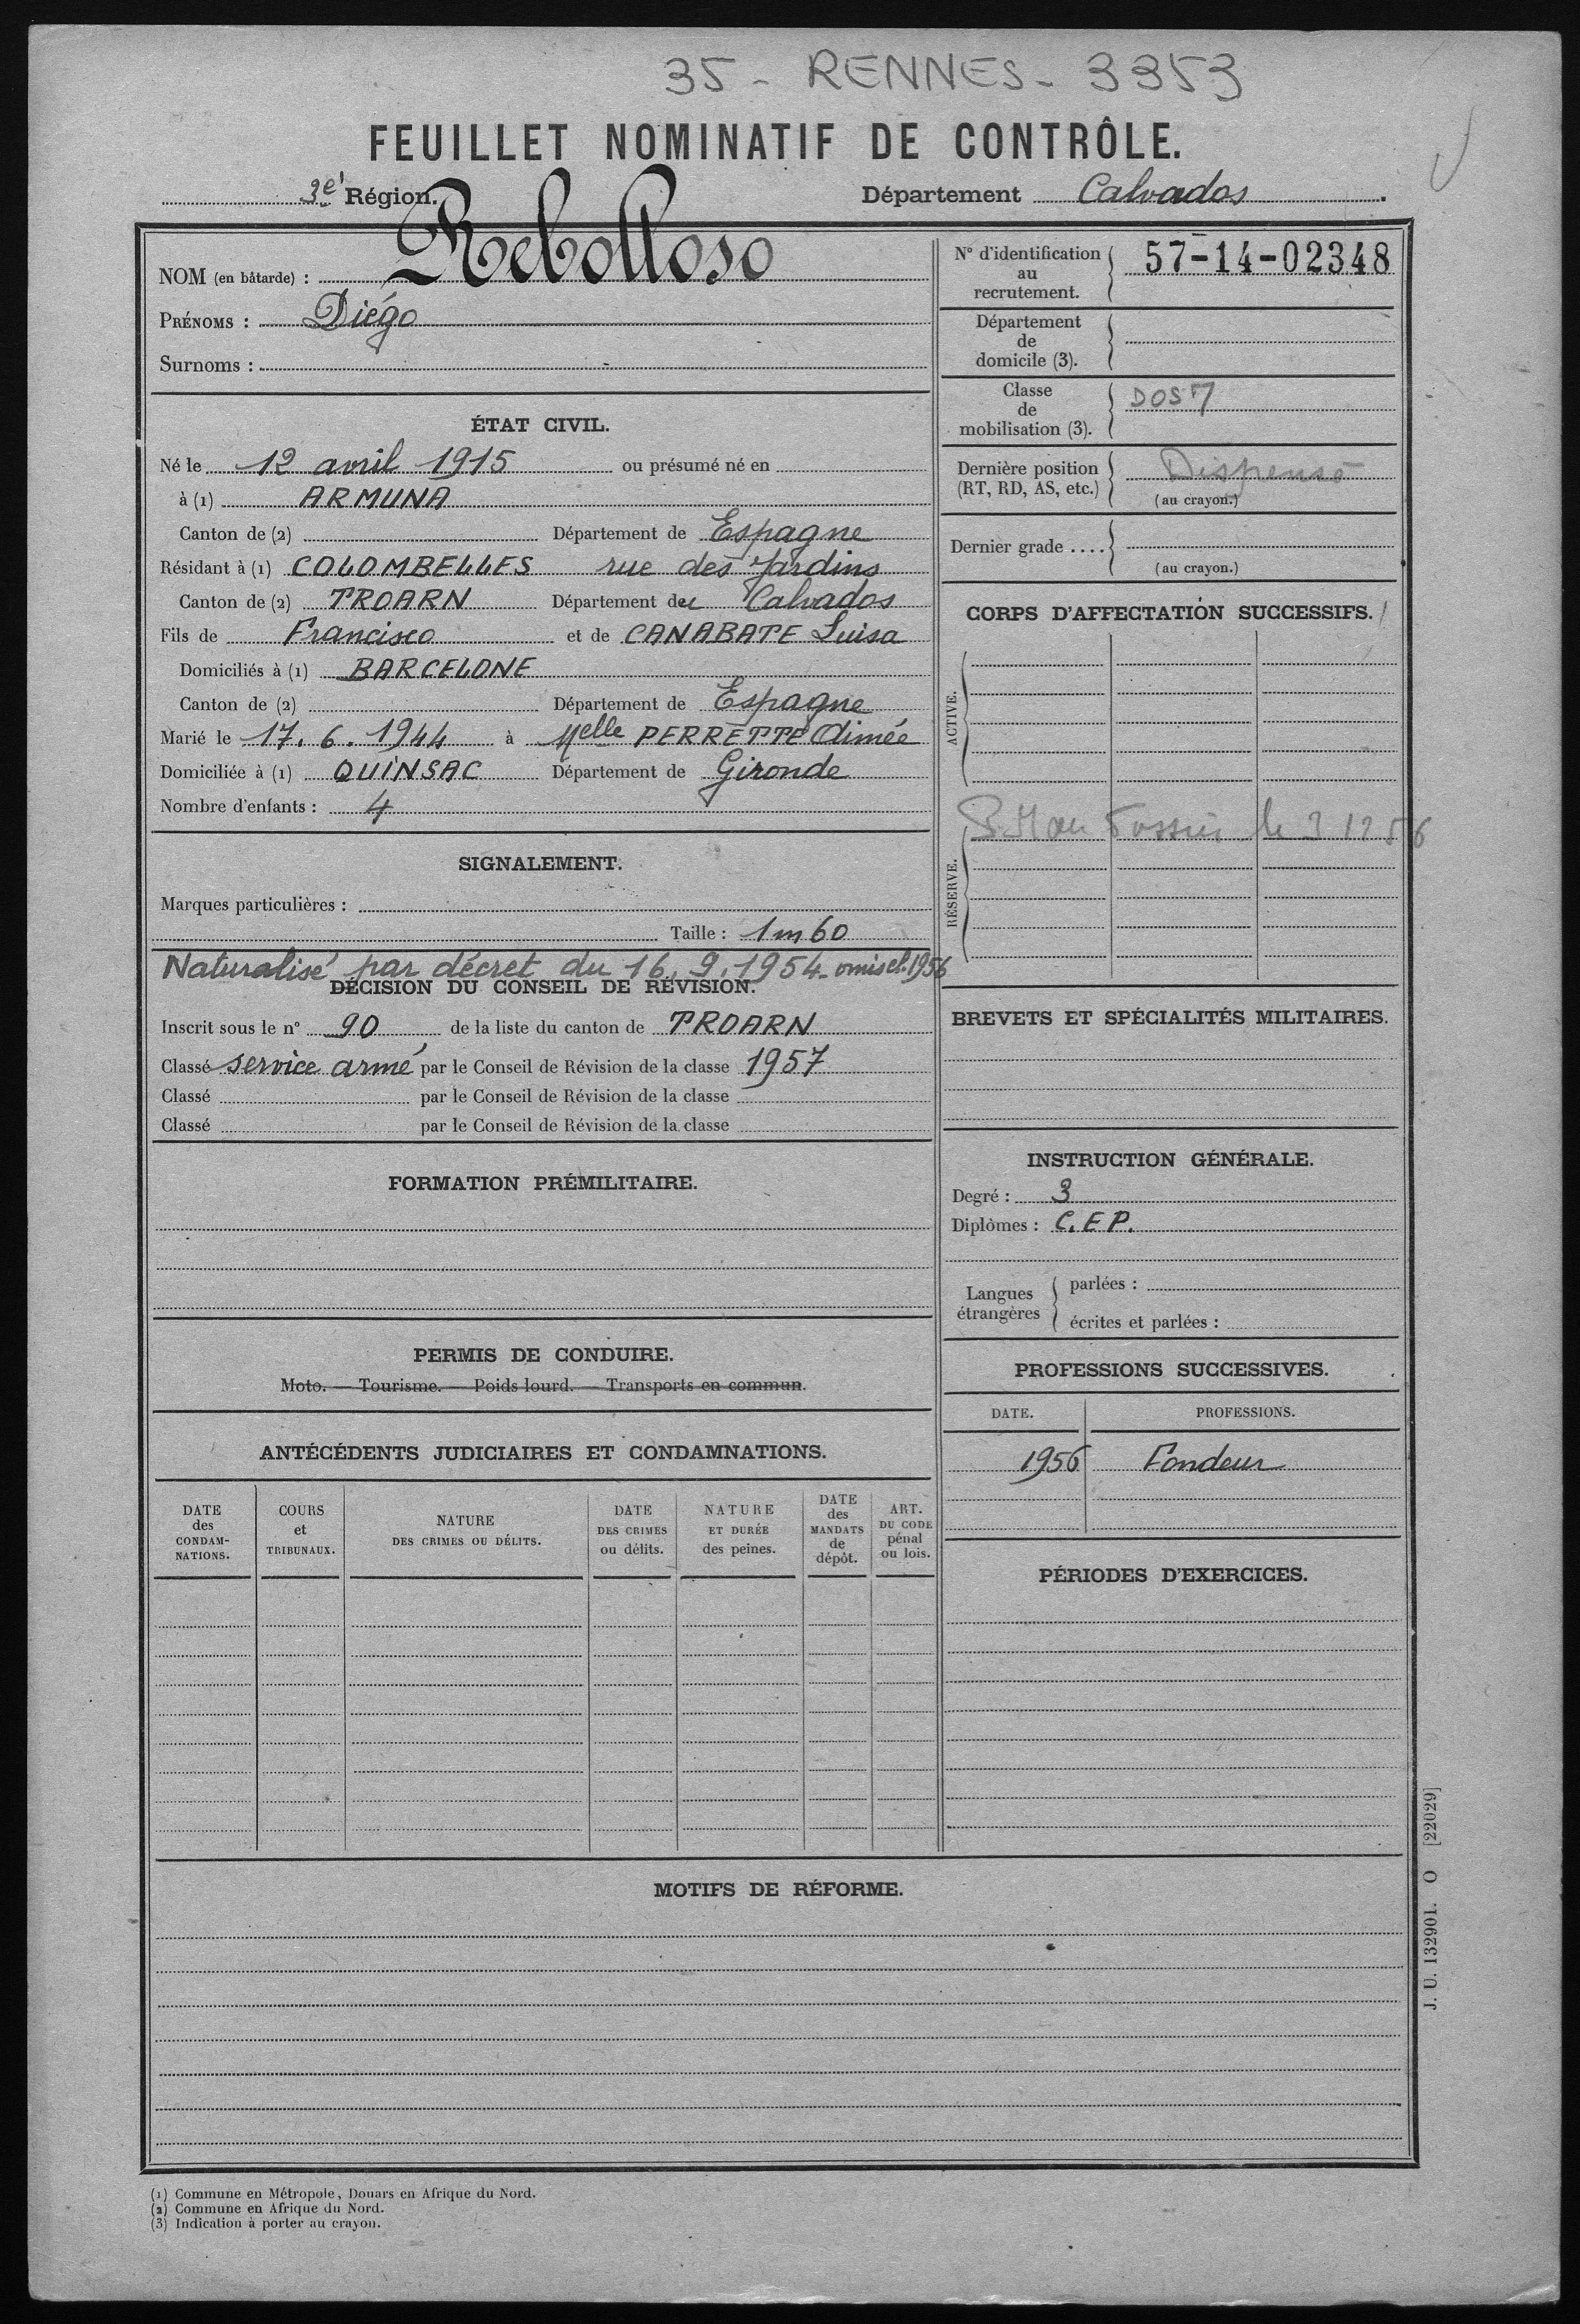 35 - RENNES - 3353
FEUILLET NOMINATIF DE CONTRÔLE.
3e Région.
Département Calvados.
NOM (en bâtarde) : Rebolloso
PRÉNOMS : Diégo
Surnoms : -
ÉTAT CIVIL.
Né le 12 avril 1915 ou présumé né en
à (1) ARMUNA
Canton de (2) Département de Espagne
Résidant à (1) COLOMBELLES rue des Jardins
Canton de (2) TROARN Département du Calvados
Fils de Francisco et de CANABATE Luisa
Domiciliés à (1) BARCELONE
Canton de (2) Département de Espagne
Marié le 17. 6. 1944 à Melle PERRETTE Aimée
Domiciliée à (1) QUINSAC Département de Gironde
Nombre d'enfants : 4
SIGNALEMENT.
Marques particulières :
Taille : 1m60
Naturalisé par décret du 16. 9. 1954 - omis cl. 1956
DÉCISION DU CONSEIL DE RÉVISION.
Inscrit sous le n° 90 de la liste du canton de TROARN
Classé service armé par le Conseil de Révision de la classe 1957
Classé par le Conseil de Révision de la classe
Classé par le Conseil de Révision de la classe
FORMATION PRÉMILITAIRE.
PERMIS DE CONDUIRE.
Moto. — Tourisme. — Poids lourd. — Transports en commun.
ANTÉCÉDENTS JUDICIAIRES ET CONDAMNATIONS.
DATE des CONDAM-NATIONS.
COURS et TRIBUNAUX.
NATURE DES CRIMES OU DÉLITS.
DATE DES CRIMES ou délits.
NATURE ET DURÉE des peines.
DATE des MANDATS de dépôt.
ART. DU CODE pénal ou lois.
N° d'identification au recrutement. 57-14-02348
Département de domicile (3).
Classe de mobilisation (3). DOS7
Dernière position (RT, RD, AS, etc.) Dispensé
(au crayon.)
Dernier grade ....
(au crayon.)
CORPS D'AFFECTATION SUCCESSIFS.
ACTIVE.
RÉSERVE.
BREVETS ET SPÉCIALITÉS MILITAIRES.
INSTRUCTION GÉNÉRALE.
Degré : 3
Diplômes : C.E.P.
Langues étrangères
parlées :
écrites et parlées :
PROFESSIONS SUCCESSIVES.
DATE. PROFESSIONS.
1956 Fondeur
PÉRIODES D'EXERCICES.
MOTIFS DE RÉFORME.
J. U. 132901. O [22029]
(1) Commune en Métropole, Douars en Afrique du Nord.
(2) Commune en Afrique du Nord.
(3) Indication à porter au crayon.